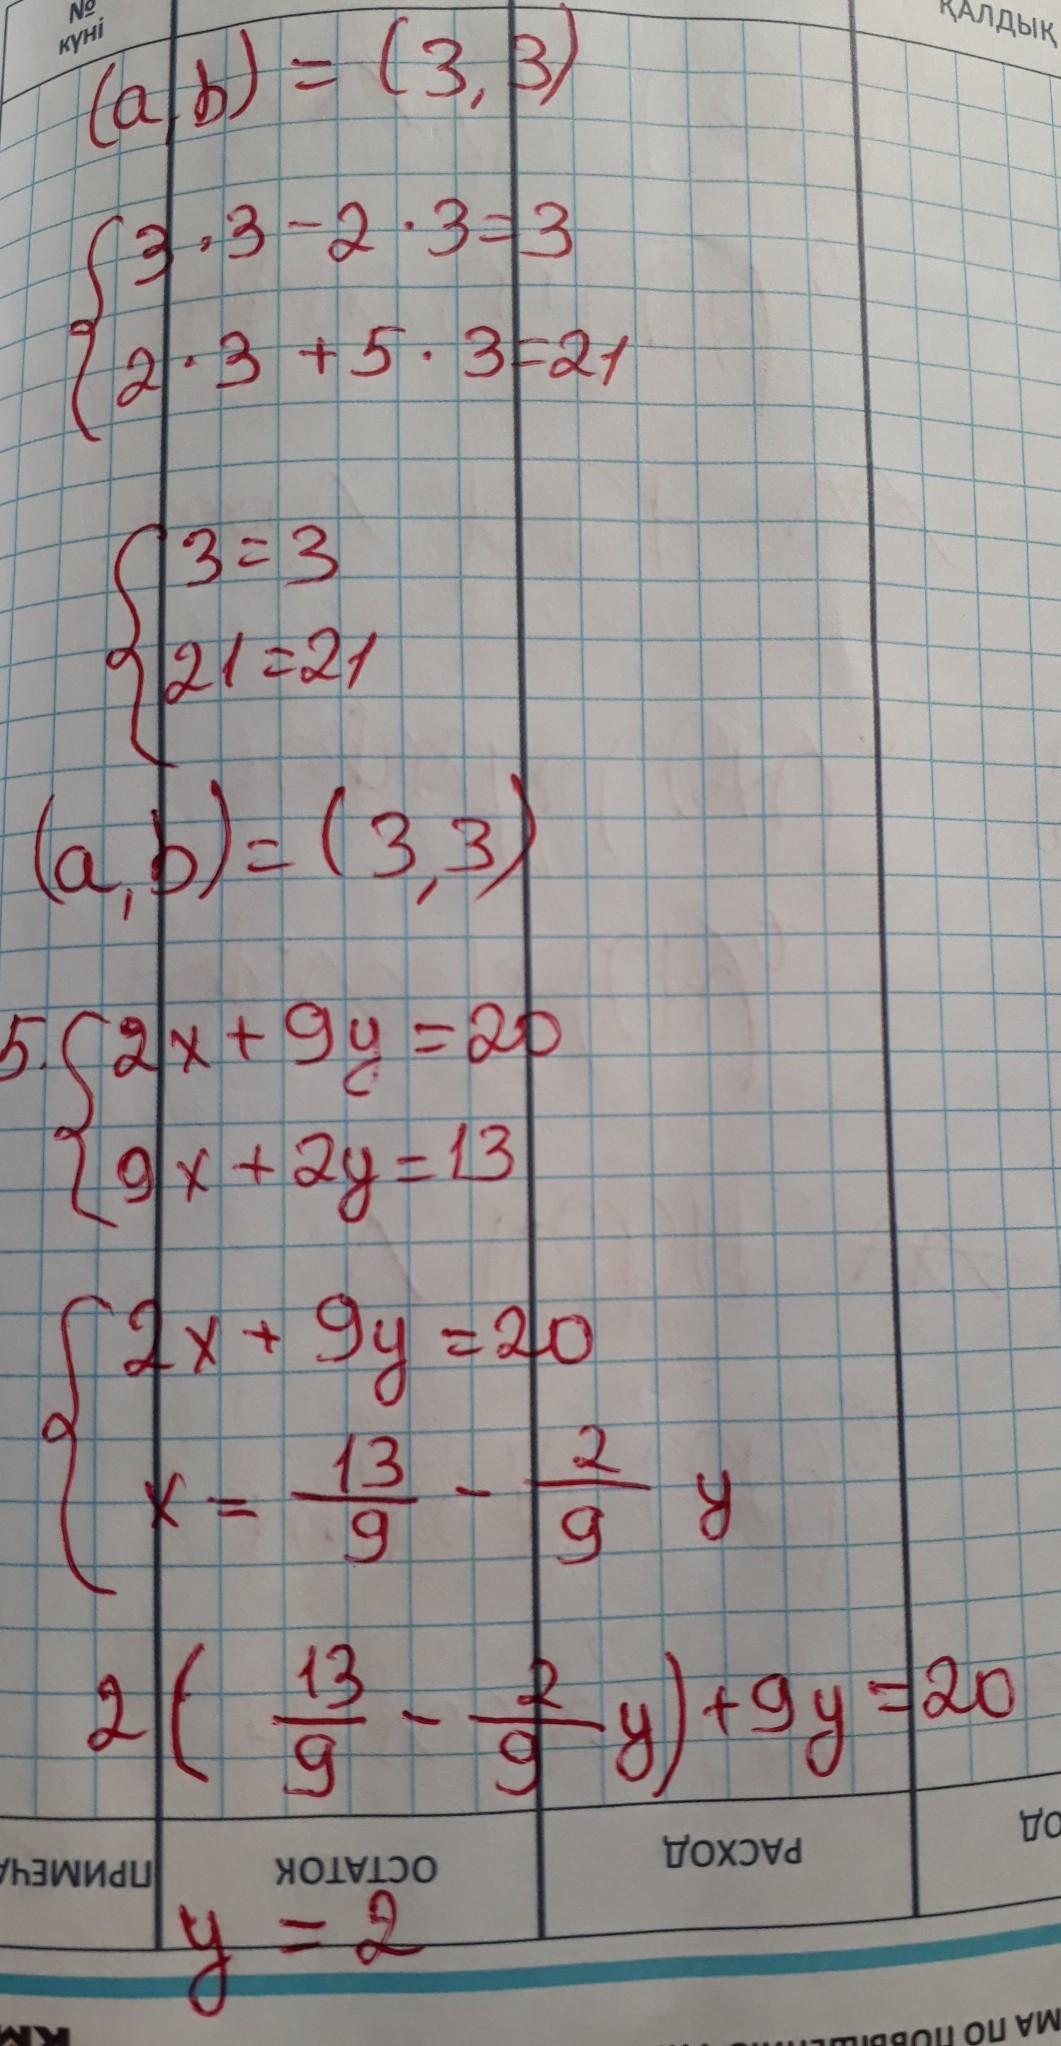 №
күні
ҚАЛДЫҚ
(a,b) = (3,3)
3·3-2·3=3
2·3+5·3=21
3=3
21=21
(a,b)=(3,3)
5. 2x+9y=20
9x+2y=13
2x+9y=20
x = 13/9 - 2/9 y
2(13/9 - 2/9 y)+9y=20
ОСТАТОК
РАСХОД
y = 2